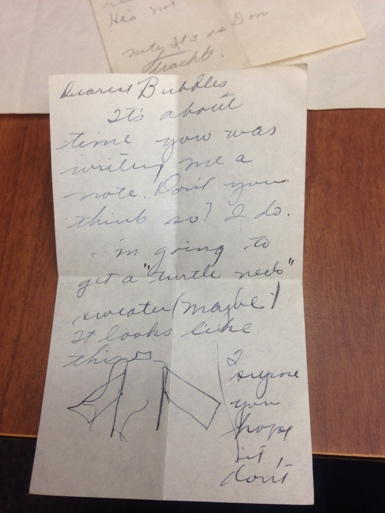 His not
note. It's so Don
Dearest Bubbles
It's about
time you was
writing me a
note. Don't you
think so? I do.
I'm going to
get a "turtle neck"
sweater (maybe)
It looks like
this
I
suppose
you
hope
it,
don't